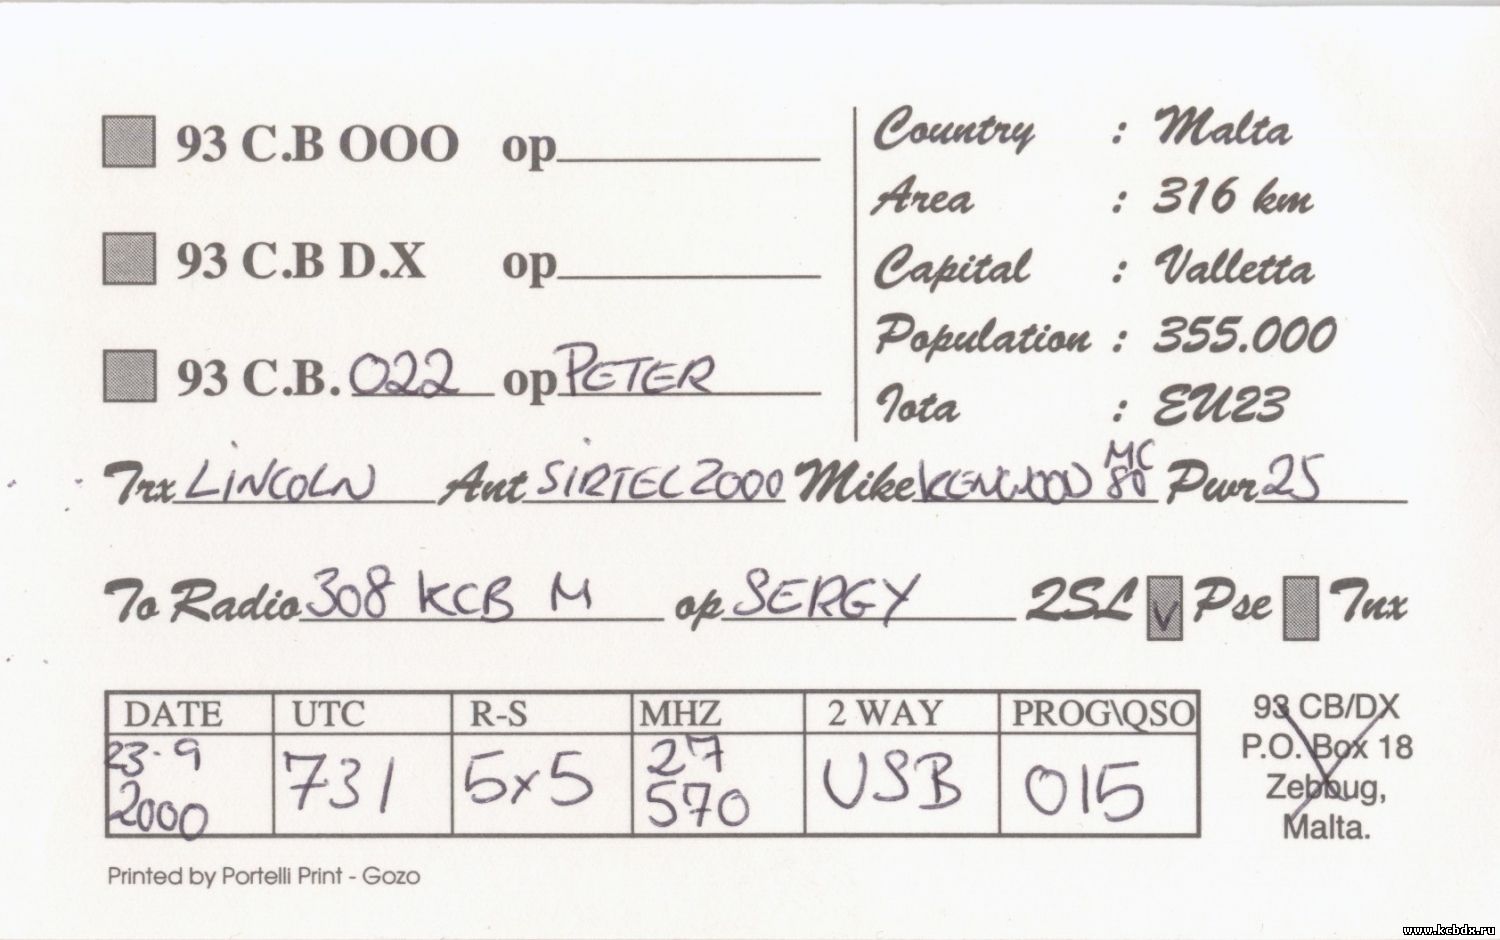 93 C.B OOO op
93 C.B D.X op
93 C.B. 022 op PETER
Country : Malta
Area : 316 km
Capital : Valletta
Population : 355.000
Iota : EU23
Trx LINCOLN Ant SIRTEL 2000 Mike KENWOOD MC 80 Pwr 25
To Radio 308 KCB M op SERGY QSL V Pse Tnx
DATE UTC R-S MHZ 2 WAY PROG\QSO
23-9 2000 731 5x5 27 570 USB 015
93 CB/DX
P.O. Box 18
Zebbug,
Malta.
Printed by Portelli Print - Gozo
www.kcbdx.ru